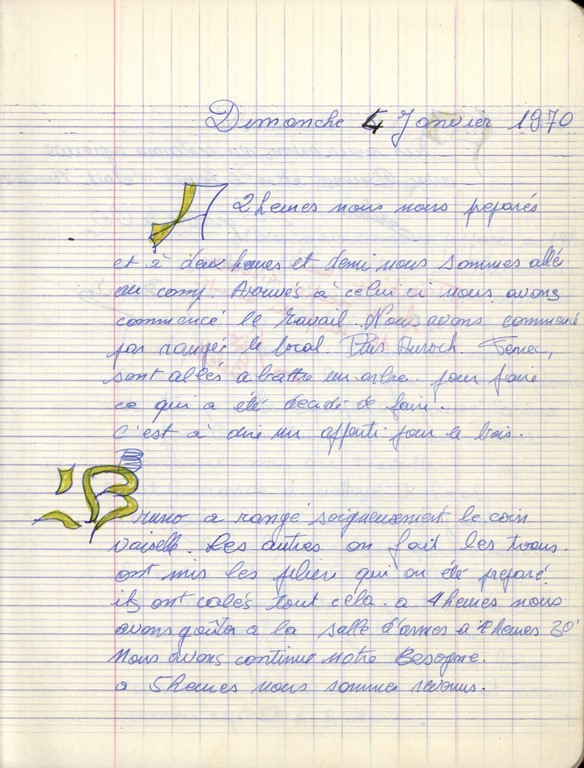 Dimanche 4 Janvier 1970
A 2 heures nous nous preparés
et à deux heures et demi nous sommes allé
au camp. Arrivés à celui ci nous avons
commencé le travail. Nous avons commencé
par rangé le local. Puis Auroch. Fenec,
sont allés abattre un arbre pour faire
ce qui a été décidé de faire.
C'est à dire un appenti pour le bois.
Bruno a rangé soigneusement le coin
vaiselle. Les autres on fait les trous.
ont mis les piliers qui on été preparé.
ils ont calés tout cela. a 4 heures nous
avons goûter a la salle d'armes a 4 heures 30'
Nous avons continue notre Besogne.
a 5 heures nous sommes revenus.